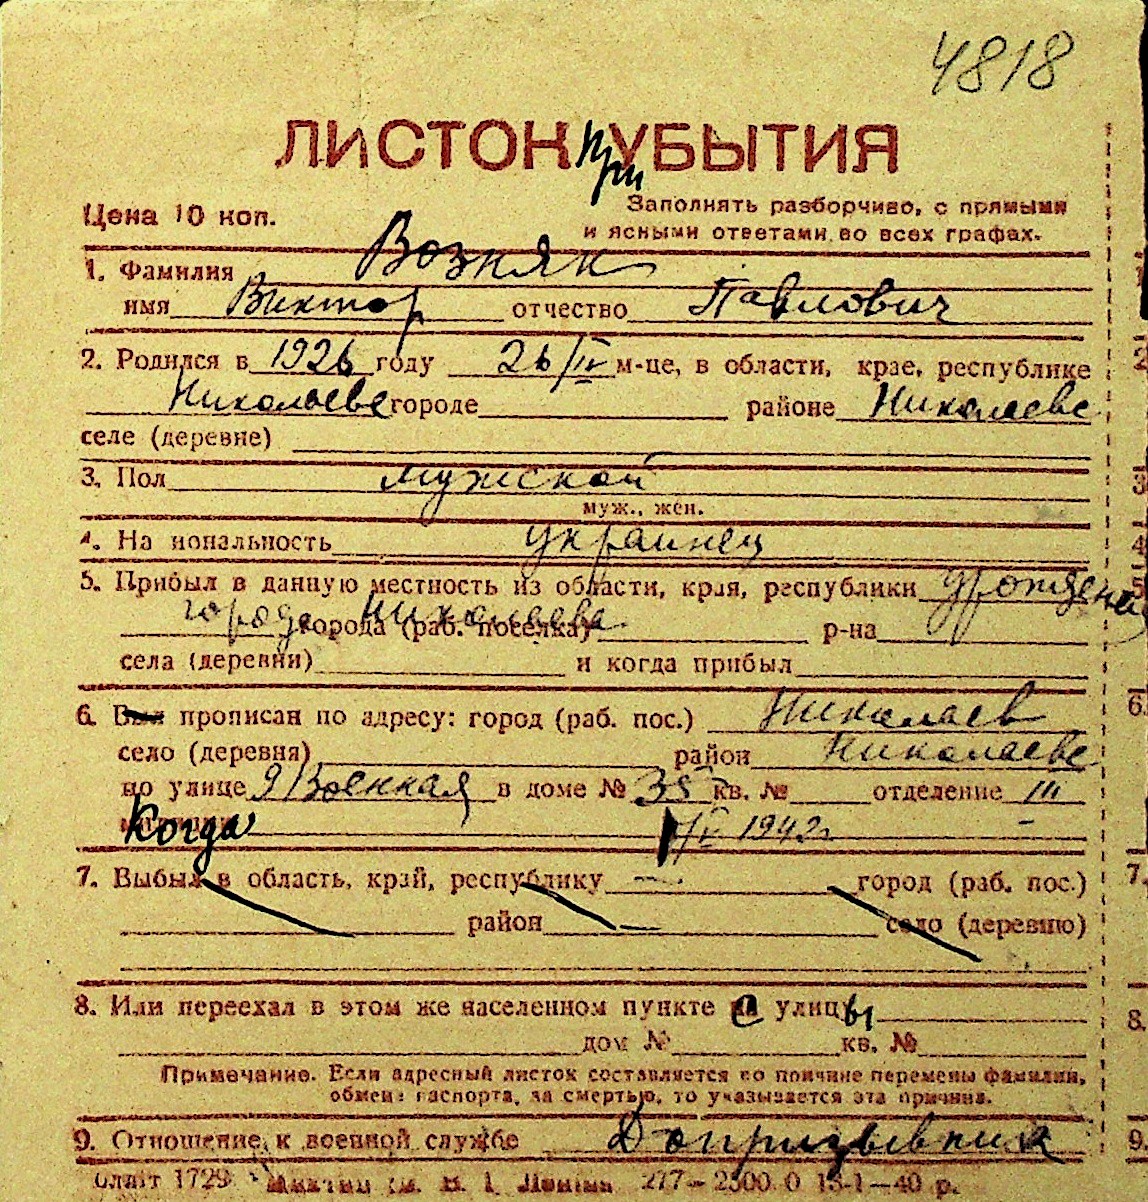 4818
ЛИСТОК при УБЫТИЯ
Цена 10 коп.
Заполнять разборчиво, с прямыми
и ясными ответами во всех графах.
1. Фамилия Возняк
имя Виктор отчество Павлович
2. Родился в 1926 году 26/IV м-це, в области, крае, республике
Николаеве городе районе Николаеве
селе (деревне)
3. Пол мужской
муж., жен.
4. На иональность украинец
5. Прибыл в данную местность из области, края, республики урожденец
города Николаева города (раб. поселка) р-на
села (деревни) и когда прибыл
6. Был прописан по адресу: город (раб. пос.) Николаев
село (деревня) район Николаеве
по улице 9 Военная в доме № 35 кв. № отделение III
Когда 1/V 1942 г
7. Выбыл в область, край, республику город (раб. пос.)
район село (деревню)
8. Или переехал в этом же населенном пункте с улицы
дом № кв. №
Примечание. Если адресный листок составляется по причине перемены фамилии,
обмена паспорта, за смертью, то указывается эта причина.
9. Отношение к военной службе Допризывник
1729 277—2500 0 13-1—40 р.